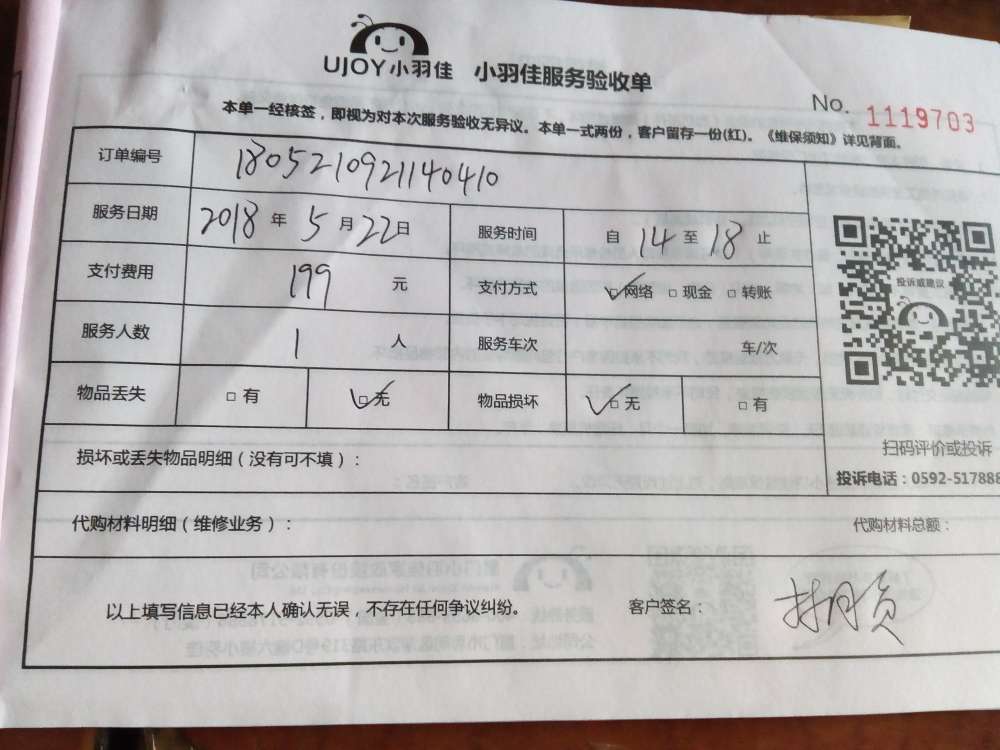 UJOY小羽佳 小羽佳服务验收单
No. 1119703
本单一经核签，即视为对本次服务验收无异议。本单一式两份，客户留存一份(红)。《维保须知》详见背面。
订单编号 1805210921140410
服务日期 2018 年 5 月 22 日 服务时间 自 14 至 18 止
支付费用 199 元 支付方式 ☑网络 □现金 □转账
服务人数 1 人 服务车次 车/次
物品丢失 □有 ☑无 物品损坏 ☑无 □有
投诉或建议
扫码评价或投诉
投诉电话：0592-517888
损坏或丢失物品明细（没有可不填）：
代购材料明细（维修业务）： 代购材料总额：
以上填写信息已经本人确认无误，不存在任何争议纠纷。 客户签名：